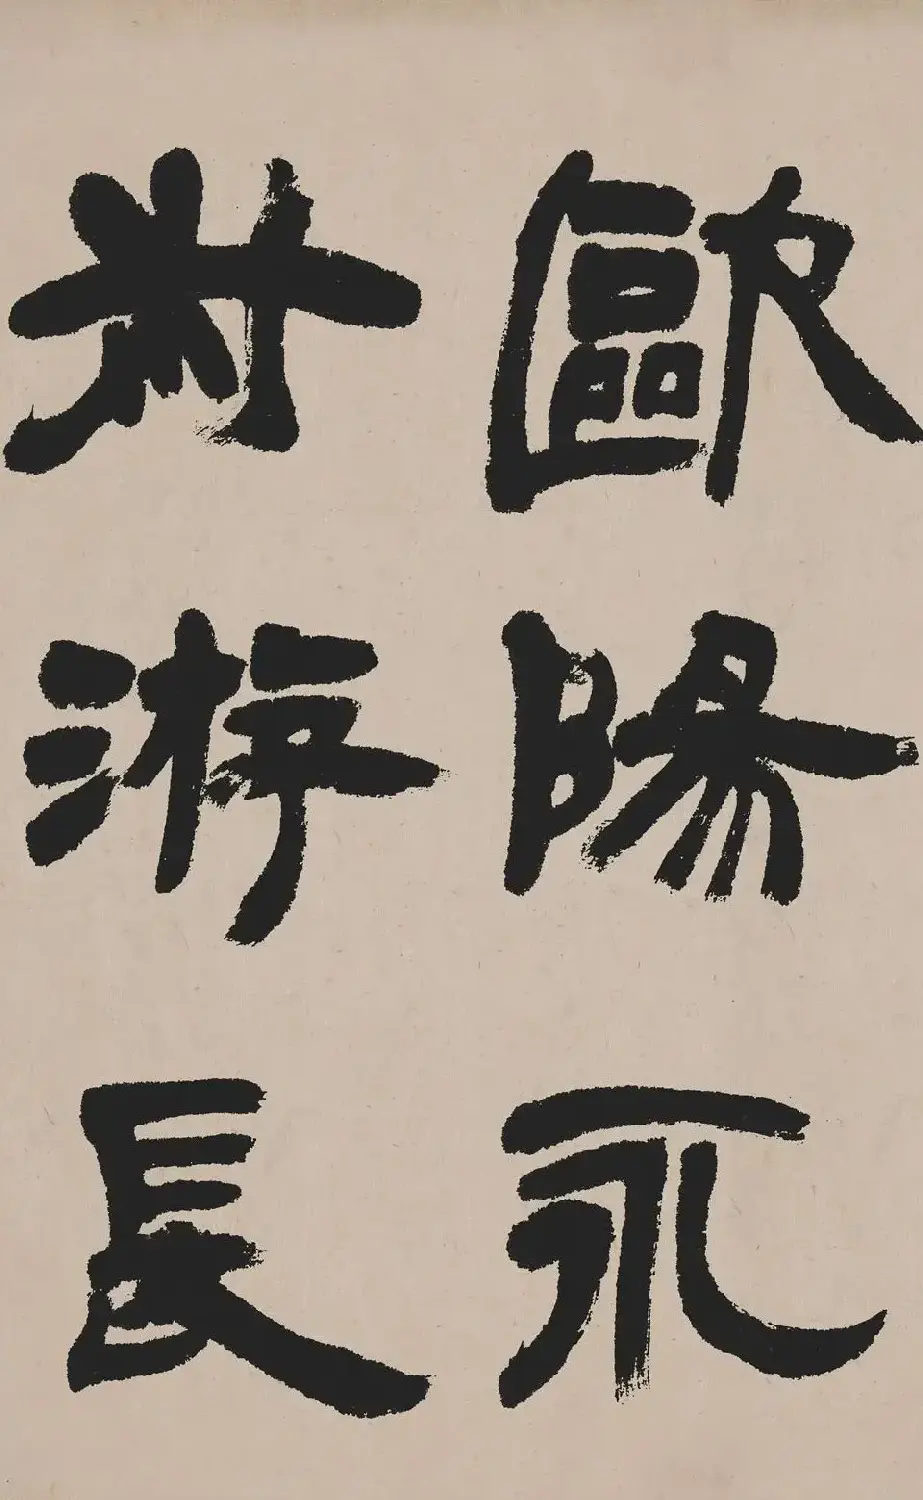 歐陽永
叔游長